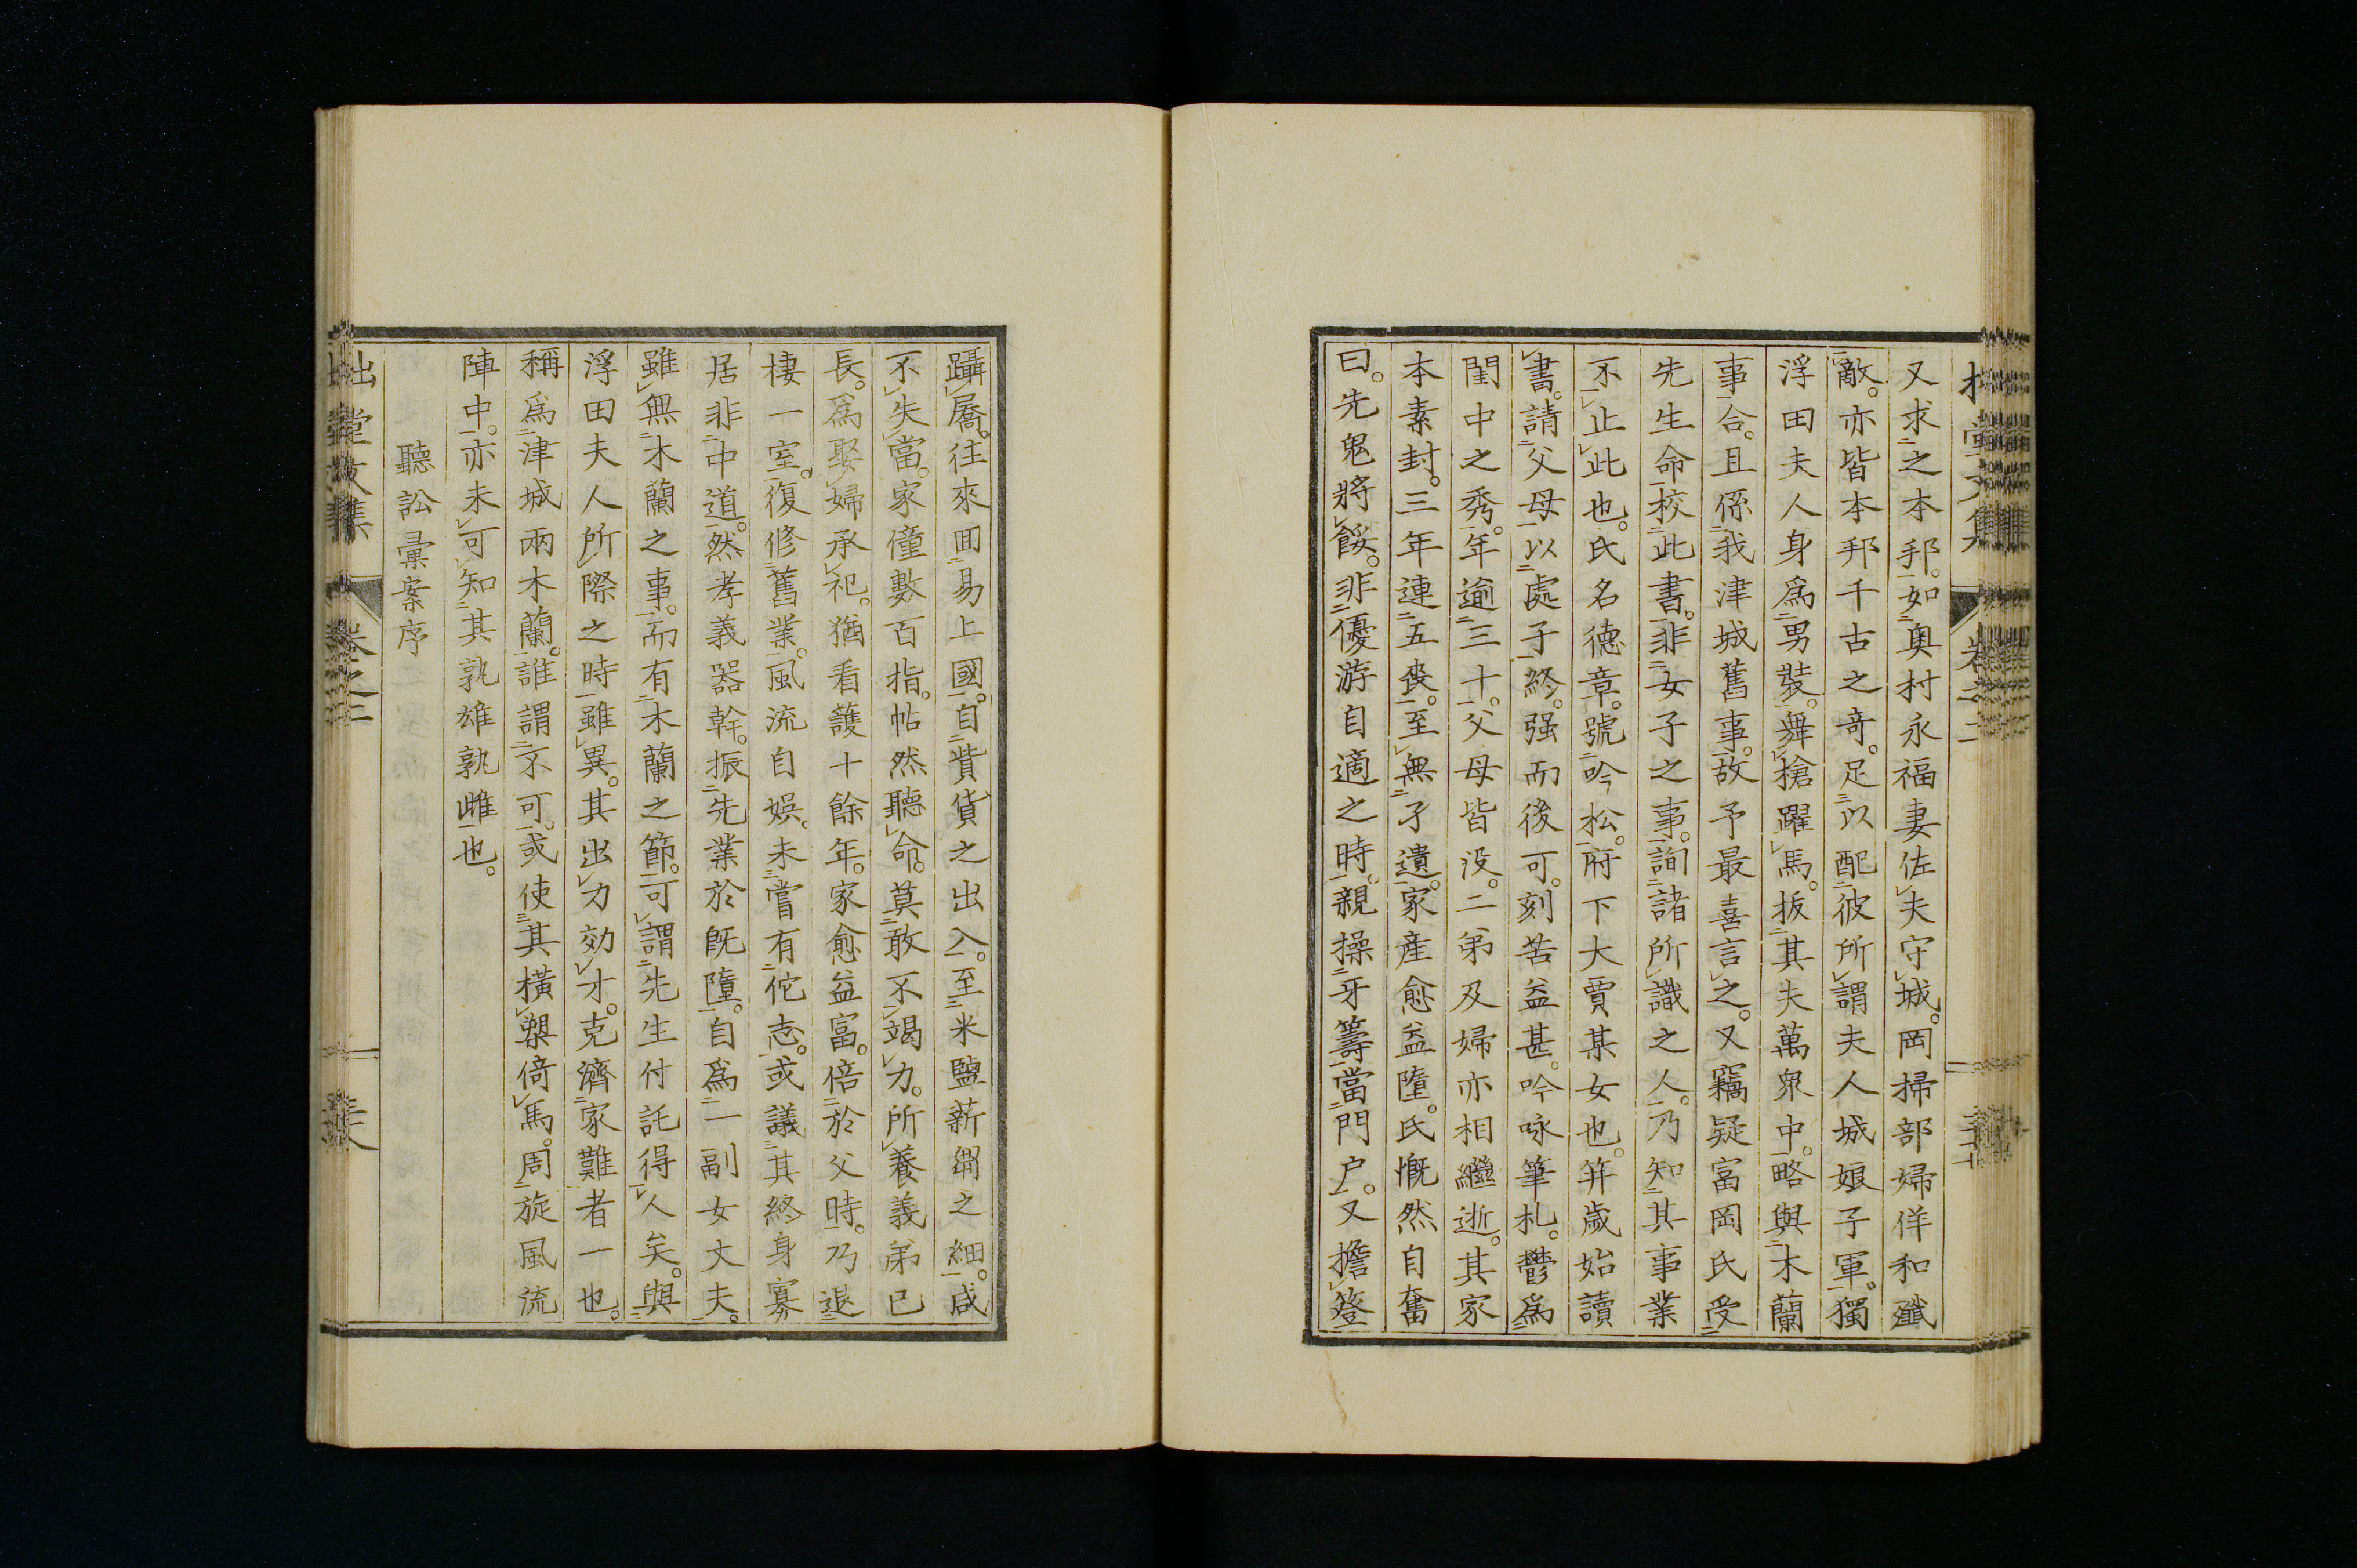 又求之本邦。如奥村永福妻佐夫守城。岡掃部婦佯和殲
敵。亦皆本邦千古之奇。足以配彼所謂夫人城娘子軍。獨
浮田夫人身爲男裝。舞槍躍馬。扳其夫萬衆中。略與木蘭
事合。且係我津城舊事。故予最喜言之。又竊疑富岡氏受
先生命校此書。非女子之事。詢諸所識之人。乃知其事業
不止此也。氏名德章。號吟松。府下大賈某女也。笄歲始讀
書。請父母以處子終。强而後可。刻苦益甚。吟咏筆札。鬱爲
閨中之秀。年逾三十。父母皆没。二弟及婦亦相繼逝。其家
本素封。三年連五喪。至無孑遺。家產愈益隳。氏慨然自奮
曰。先鬼將餒。非優游自適之時。親操牙籌當門户。又擔簦
躡屩。往來回易上國。自貲貨之出入。至米鹽薪溯之細。咸
不失當。家僮數百指。帖然聽命。莫敢不竭力。所養義弟已
長。爲娶婦承祀。猶看護十餘年。家愈益富。倍於父時。乃退
棲一室。復修舊業。風流自娯。未嘗有佗志。或議其終身寡
居非中道。然孝義器幹。振先業於既隳。自爲一副女丈夫。
雖無木蘭之事。而有木蘭之節。可謂先生付託得人矣。與
浮田夫人所際之時雖異。其出力効才。克濟家難者一也。
稱爲津城兩木蘭。誰謂不可。或使其横槊倚馬。周旋風流
陣中。亦未可知其孰雄孰雌也。
聽訟彙案序
拙堂文集 卷之二